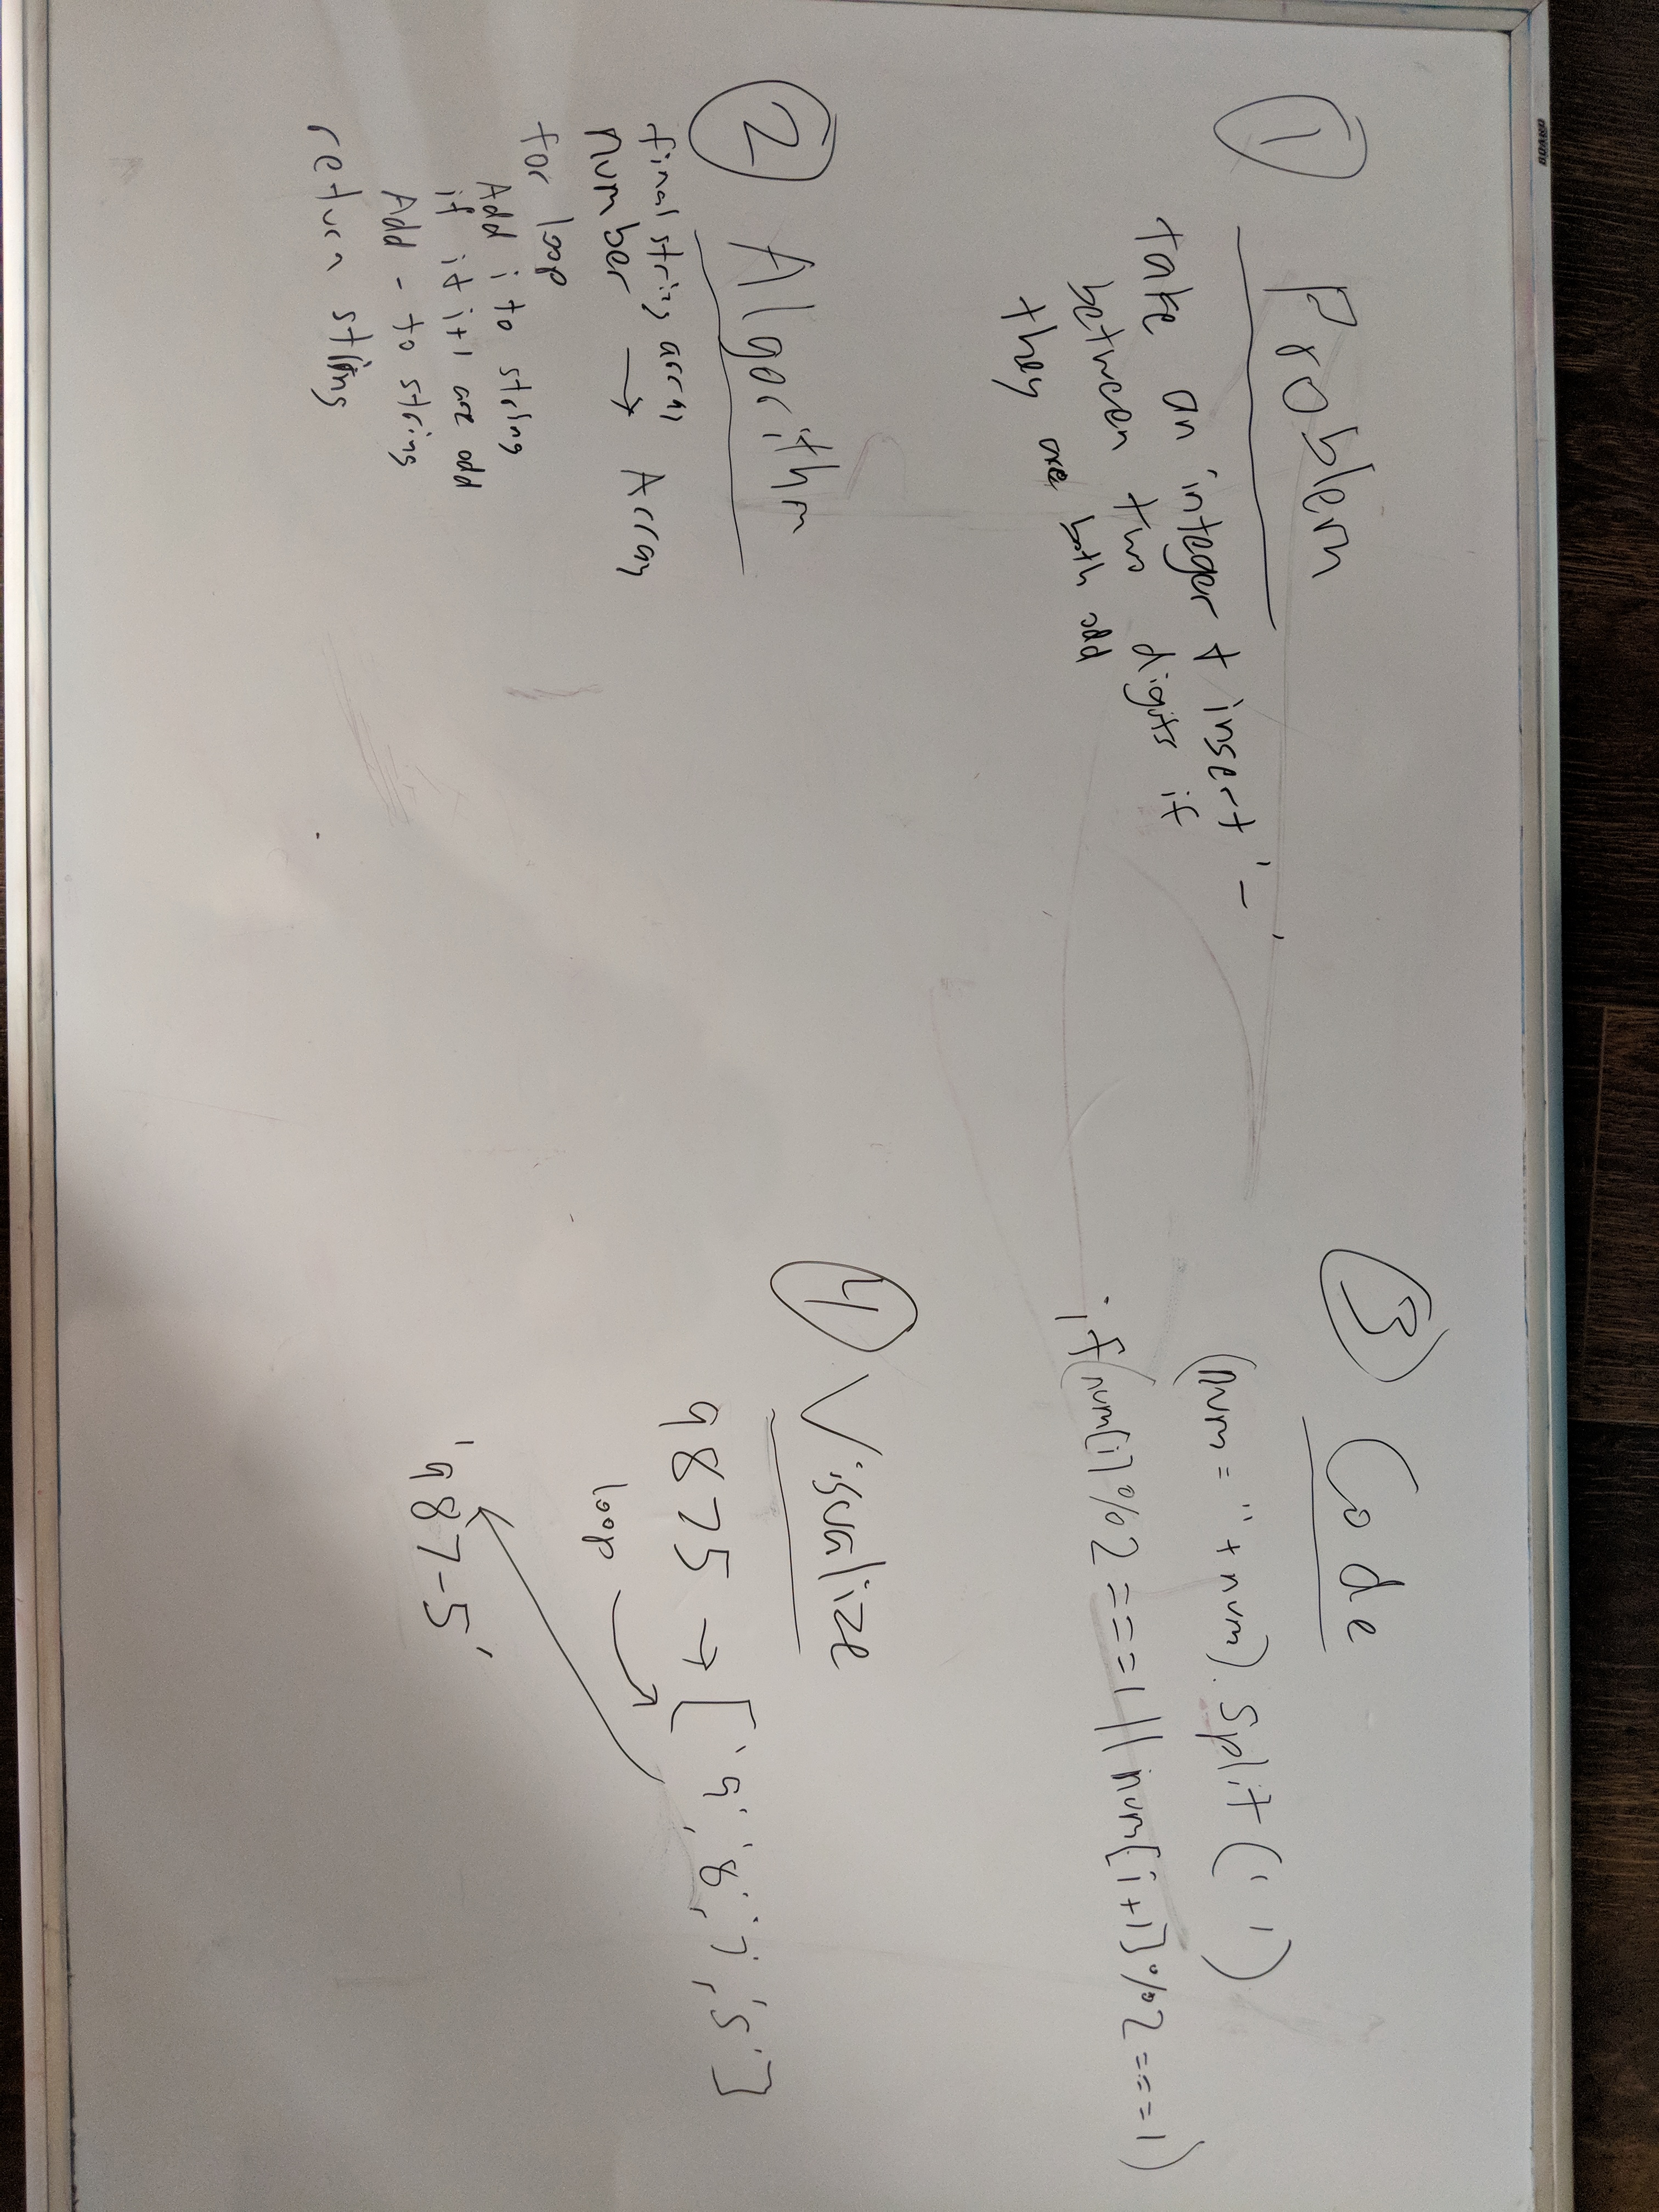 ① Problem
take an integer + insert '-'
between two digits if
they are both odd
② Algorithm
final string array
Number → Array
for loop
Add i to string
if i+ i+1 are odd
Add - to string
return string
③ Code
(num = '' + num).split('')
if(num[i]%2===1||num[i+1]%2===1)
④ Visualize
9875 → ['9','8','7','5']
loop
'987-5'